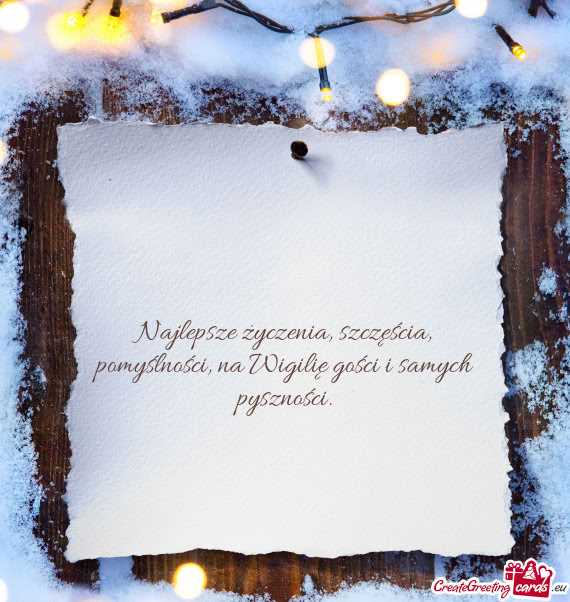 Najlepsze życzenia, szczęścia,
pomyślności, na Wigilię gości i samych
pyszności.
CreateGreetingcards.eu